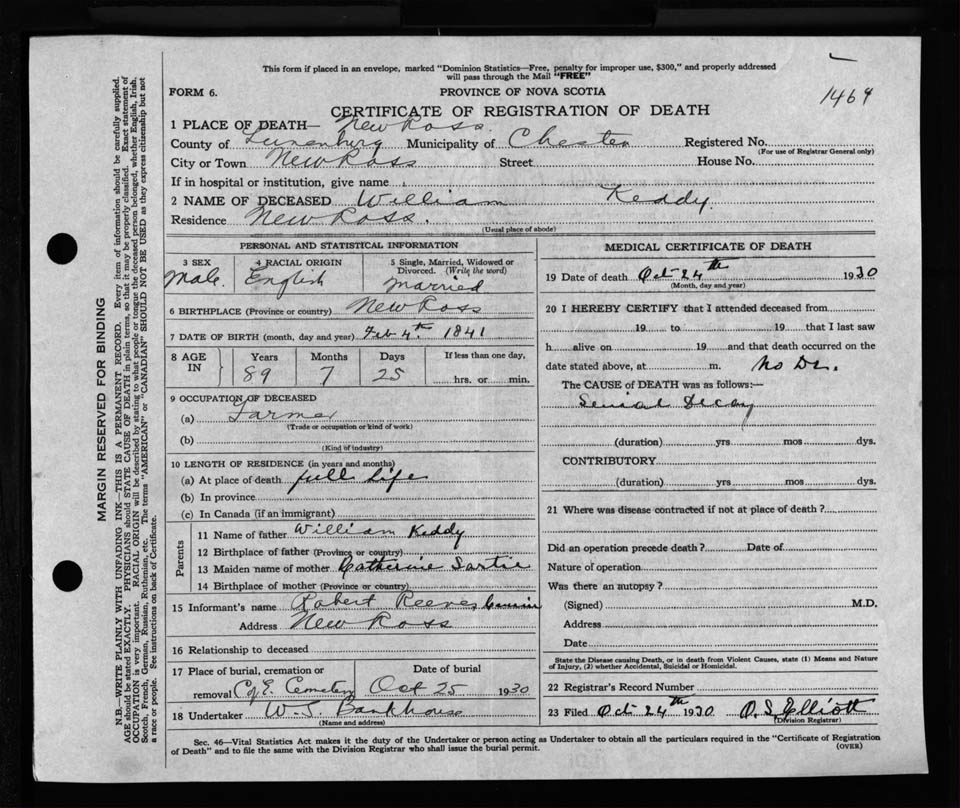 This form if placed in an envelope, marked "Dominion Statistics—Free, penalty for improper use, $300," and properly addressed
will pass through the Mail "FREE"
FORM 6.
PROVINCE OF NOVA SCOTIA
1469
CERTIFICATE OF REGISTRATION OF DEATH
1 PLACE OF DEATH— New Ross.
County of Lunenburg Municipality of Chester Registered No.
(For use of Registrar General only)
City or Town New Ross Street House No.
If in hospital or institution, give name
2 NAME OF DECEASED William Keddy.
Residence New Ross.
(Usual place of abode)
PERSONAL AND STATISTICAL INFORMATION
3 SEX 4 RACIAL ORIGIN 5 Single, Married, Widowed or
Divorced. (Write the word)
Male. English Married
6 BIRTHPLACE (Province or country) New Ross
7 DATE OF BIRTH (month, day and year) Feb 4th. 1841
8 AGE IN Years Months Days If less than one day,
89 7 25 hrs. or min.
9 OCCUPATION OF DECEASED
(a) Farmer
(Trade or occupation or kind of work)
(b)
(Kind of industry)
10 LENGTH OF RESIDENCE (in years and months)
(a) At place of death full Life
(b) In province
(c) In Canada (if an immigrant)
Parents
11 Name of father William Keddy
12 Birthplace of father (Province or country)
13 Maiden name of mother Catherine
14 Birthplace of mother (Province or country)
15 Informant's name Robert Reeves
Address New Ross
16 Relationship to deceased
17 Place of burial, cremation or Date of burial
removal C of E. Cemetery Oct 25 1930
18 Undertaker W. J. Bankhouse
(Name and address)
MEDICAL CERTIFICATE OF DEATH
19 Date of death Oct 24th 1930
(Month, day and year)
20 I HEREBY CERTIFY that I attended deceased from
19 to 19 that I last saw
h alive on 19 and that death occurred on the
date stated above, at m. No Dr.
The CAUSE of DEATH was as follows:—
Senial Decay
(duration) yrs mos dys.
CONTRIBUTORY
(duration) yrs mos dys.
21 Where was disease contracted if not at place of death?
Did an operation precede death? Date of
Nature of operation
Was there an autopsy?
(Signed) M.D.
Address
Date
State the Disease causing Death, or in death from Violent Causes, state (1) Means and Nature
of Injury, (2) whether Accidental, Suicidal or Homicidal.
22 Registrar's Record Number
23 Filed Oct 24th 1930 O. S. Elliott
(Division Registrar)
Sec. 46—Vital Statistics Act makes it the duty of the Undertaker or person acting as Undertaker to obtain all the particulars required in the "Certificate of Registration
of Death" and to file the same with the Division Registrar who shall issue the burial permit.
(OVER)
MARGIN RESERVED FOR BINDING
N.B.—WRITE PLAINLY WITH UNFADING INK—THIS IS A PERMANENT RECORD. Every item of information should be carefully supplied.
AGE should be stated EXACTLY. PHYSICIANS should STATE CAUSE OF DEATH in plain terms, so that it may be properly classified. Exact statement of
OCCUPATION is very important. RACIAL ORIGIN will be described by stating to what people or tongue the deceased person belonged, whether English, Irish,
Scotch, French, German, Russian, Ruthenian, etc. The terms "AMERICAN" or "CANADIAN" SHOULD NOT BE USED as they express citizenship but not
a race or people. See instructions on back of Certificate.